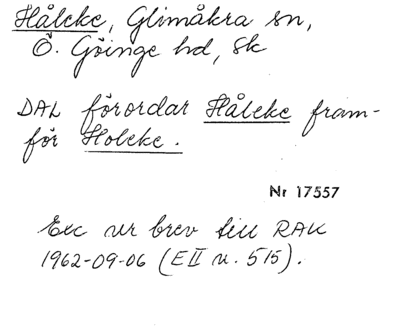 Hålcke, Glimåkra sn,
Ö. Göinge hd, Sk
DAL förordar Hålcke fram-
för Holcke.
Nr 17557
Exc ur brev till RAK
1962-09-06 (E II u. 515).